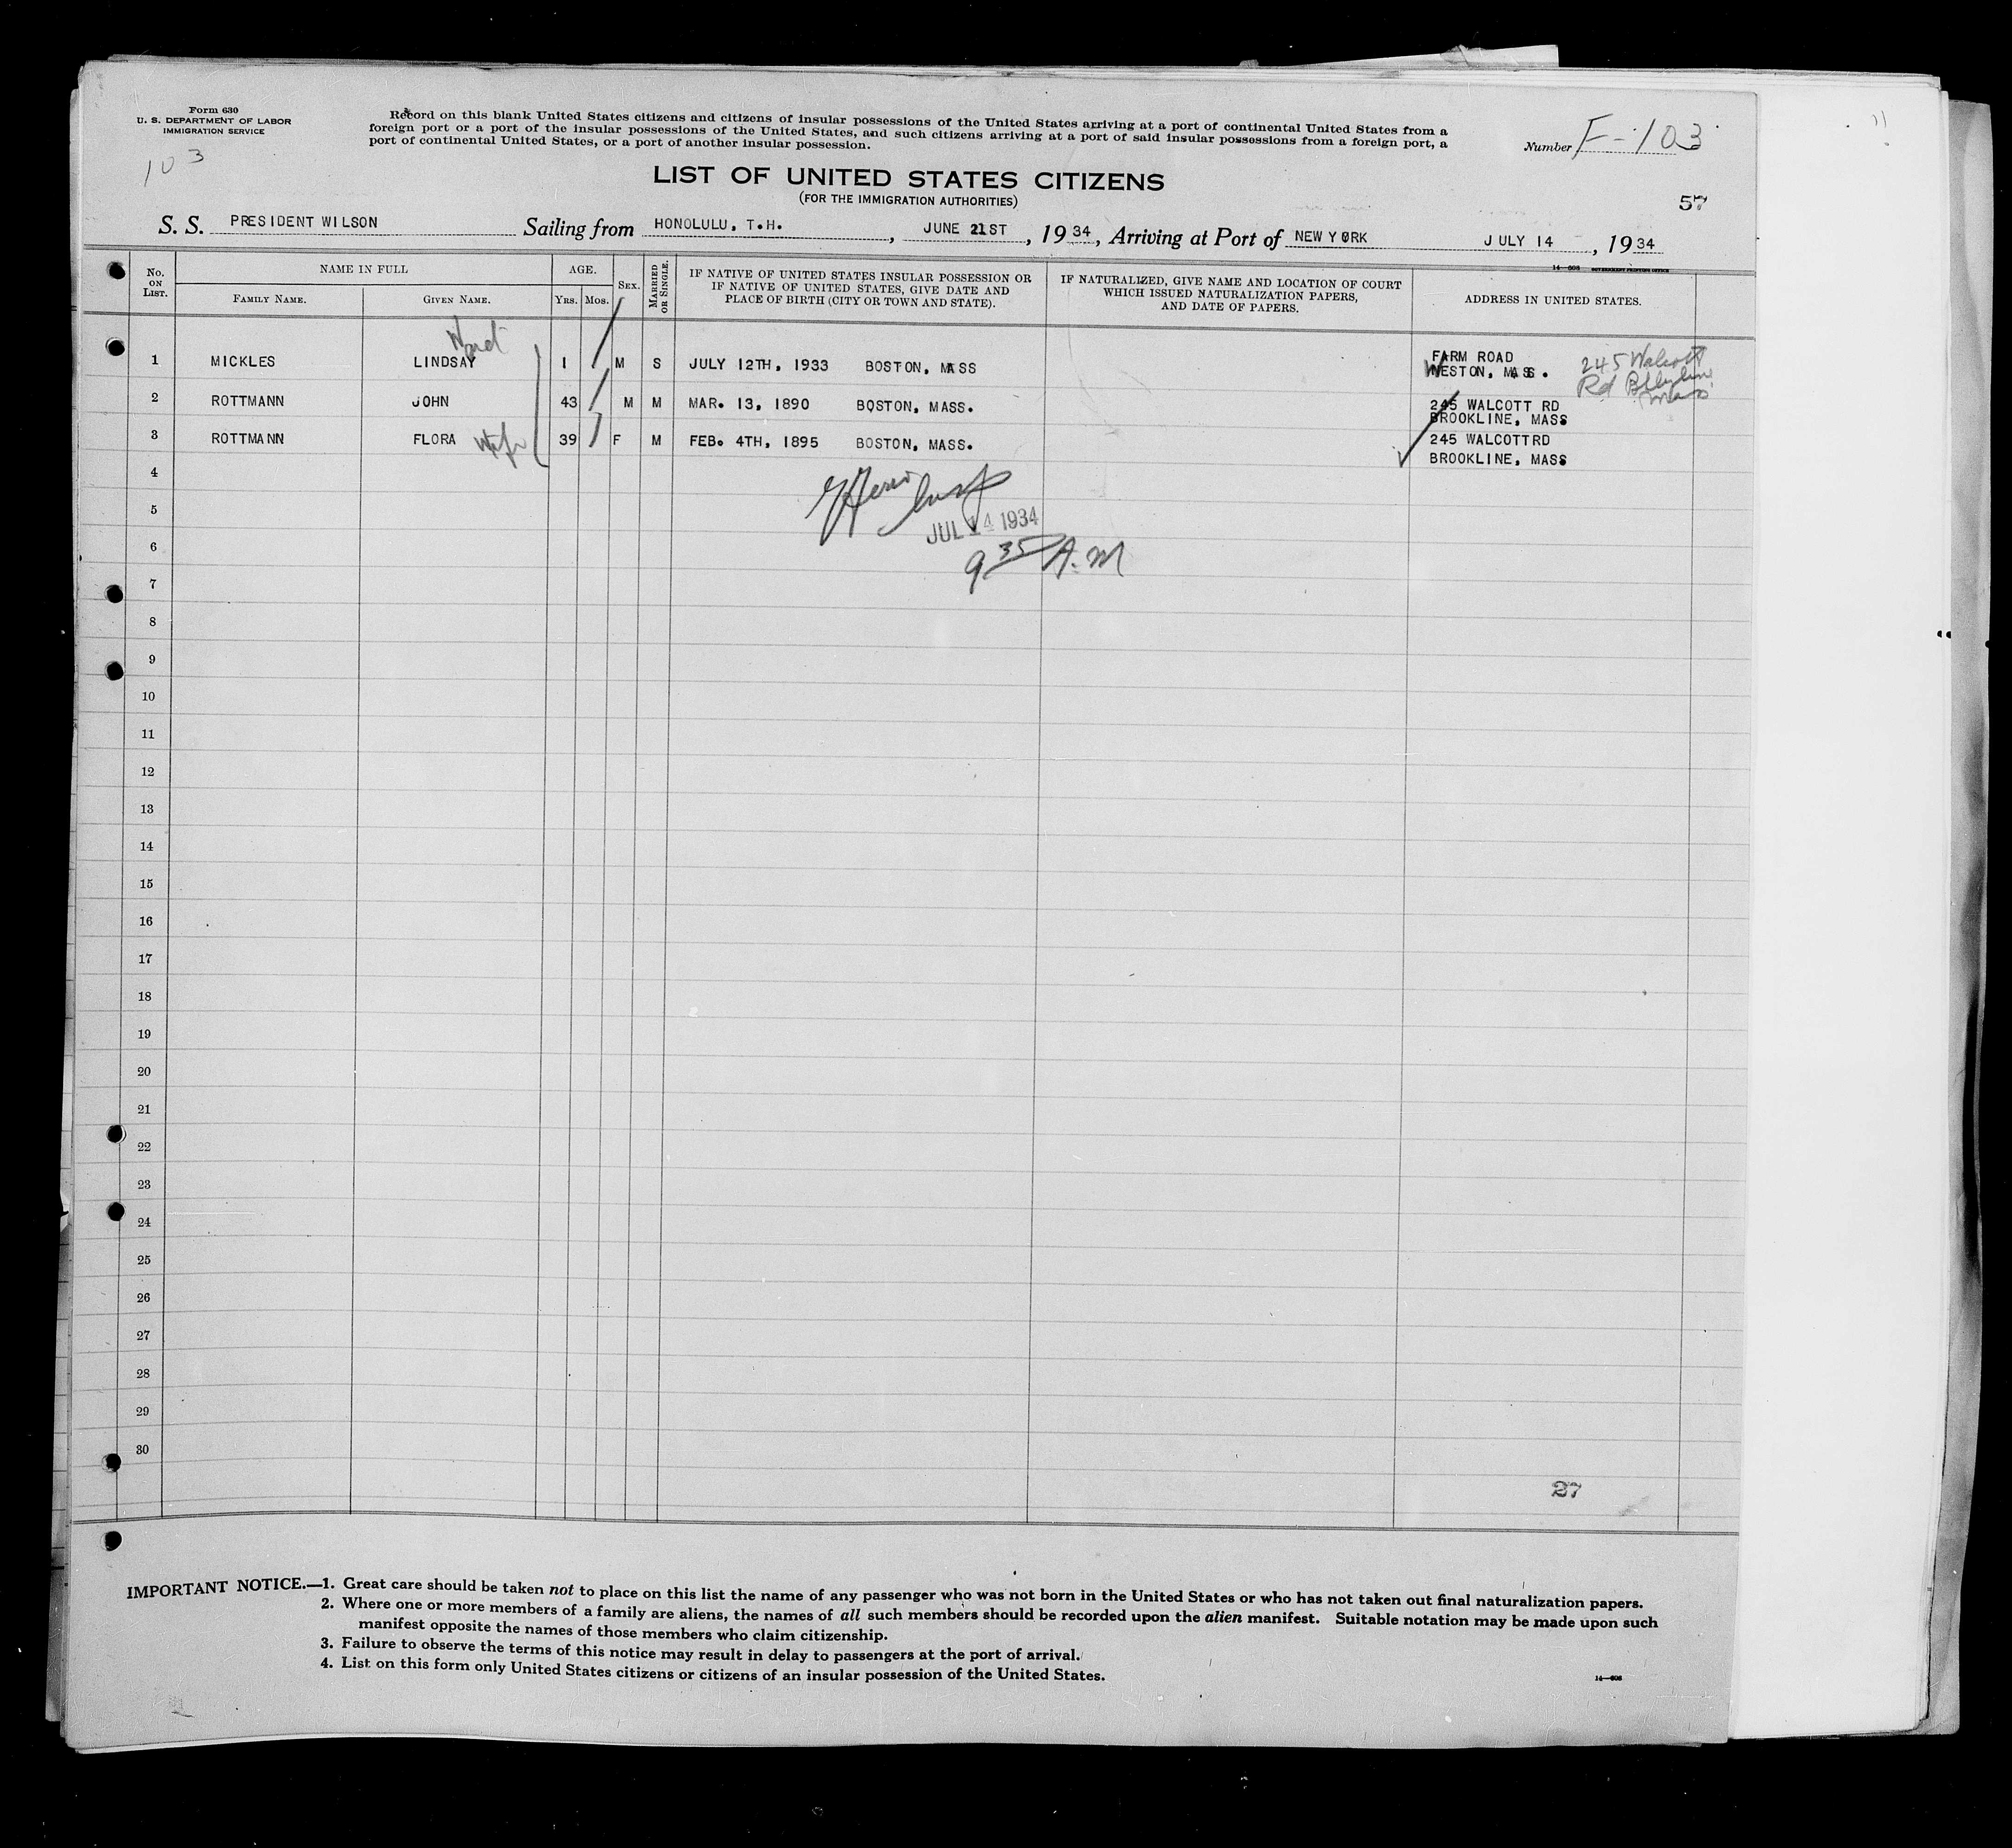 Form 630
U. S. DEPARTMENT OF LABOR
IMMIGRATION SERVICE
103
Record on this blank United States citizens and citizens of insular possessions of the United States arriving at a port of continental United States from a
foreign port or a port of the insular possessions of the United States, and such citizens arriving at a port of said insular possessions from a foreign port, a
port of continental United States, or a port of another insular possession.
Number F-103
LIST OF UNITED STATES CITIZENS
(FOR THE IMMIGRATION AUTHORITIES)
57
S. S. PRESIDENT WILSON Sailing from HONOLULU, T.H., JUNE 21ST, 1934, Arriving at Port of NEW YORK JULY 14, 1934
14—608 GOVERNMENT PRINTING OFFICE
No. ON LIST. NAME IN FULL AGE. SEX. MARRIED OR SINGLE. IF NATIVE OF UNITED STATES INSULAR POSSESSION OR IF NATIVE OF UNITED STATES, GIVE DATE AND PLACE OF BIRTH (CITY OR TOWN AND STATE). IF NATURALIZED, GIVE NAME AND LOCATION OF COURT WHICH ISSUED NATURALIZATION PAPERS, AND DATE OF PAPERS. ADDRESS IN UNITED STATES.
FAMILY NAME. GIVEN NAME. Yrs. Mos.
Ward
1 MICKLES LINDSAY 1 M S JULY 12TH, 1933 BOSTON, MASS FARM ROAD WESTON, MASS. 245 Walcott Rd Mass
2 ROTTMANN JOHN 43 M M MAR. 13, 1890 BOSTON, MASS. 245 WALCOTT RD BROOKLINE, MASS
3 ROTTMANN FLORA Wife 39 F M FEB. 4TH, 1895 BOSTON, MASS. 245 WALCOTT RD BROOKLINE, MASS
4
5
JUL 14 1934
6
9 35 A.M
7
8
9
10
11
12
13
14
15
16
17
18
19
20
21
22
23
24
25
26
27
28
29
30
27
IMPORTANT NOTICE.—1. Great care should be taken not to place on this list the name of any passenger who was not born in the United States or who has not taken out final naturalization papers.
2. Where one or more members of a family are aliens, the names of all such members should be recorded upon the alien manifest. Suitable notation may be made upon such
manifest opposite the names of those members who claim citizenship.
3. Failure to observe the terms of this notice may result in delay to passengers at the port of arrival.
4. List on this form only United States citizens or citizens of an insular possession of the United States.
14—608